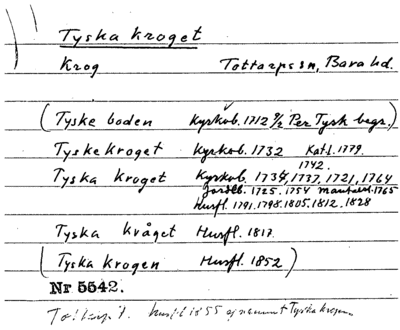 Tyska kroget
Krog Tottarps sn, Bara hd.
(Tyske boden Kyrkob. 1712 9/2 Per Tysk begr.)
Tyske kroget Kyrkob. 1732 Katl. 1779.
1742.
Tyska kroget Kyrkob. 1734, 1737, 1721, 1764
Jordb. 1725. 1754 mantalsl. 1765
Husfl. 1791. 1798. 1805. 1812. 1828
Tyska kvåget Husfl. 1817.
(Tyska krogen Husfl. 1852)
Nr 5542.
Husfl 1855 Tyska krogen